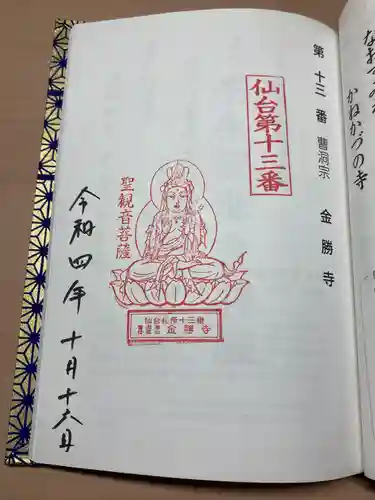 第十三番 曹洞宗 金勝寺
仙台第十三番
聖観音菩薩
仙台札所十三番
金勝寺
令和四年 十月十六日
かねかつの寺